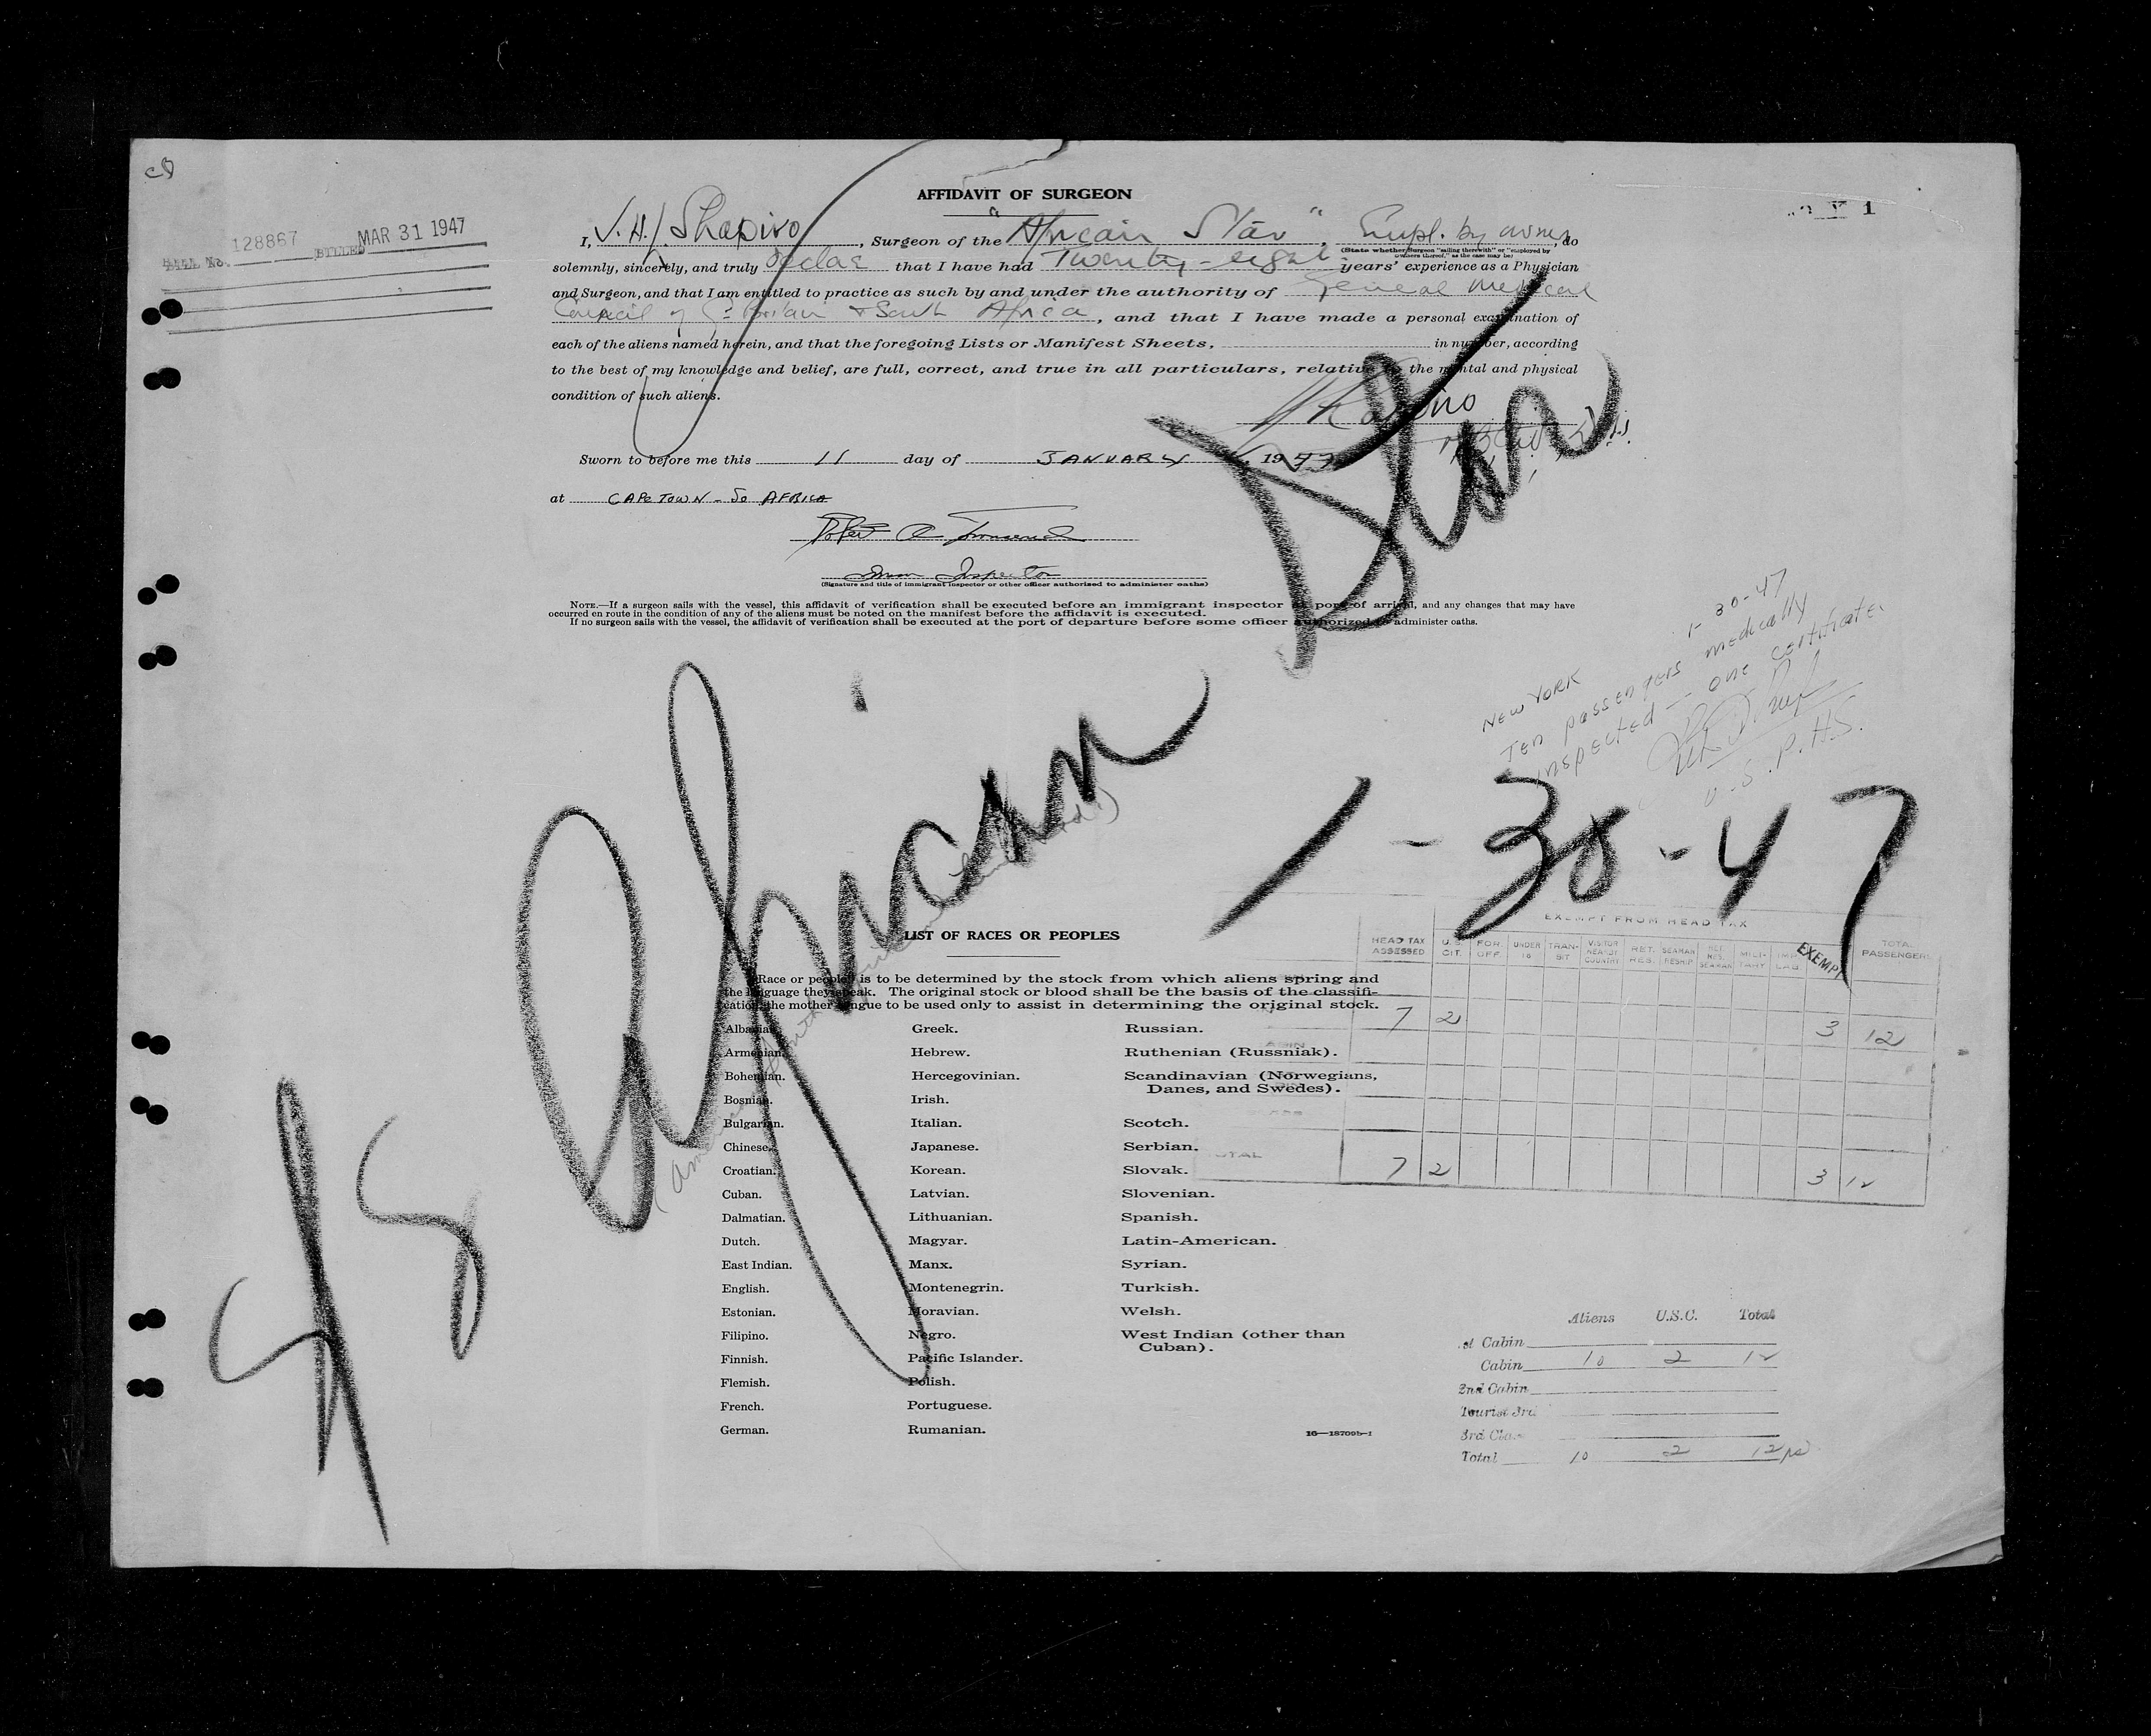 AFFIDAVIT OF SURGEON
128867 MAR 31 1947
BILL No. BILLED
I, J. H. Shapiro, Surgeon of the "African Star", Empl. by owner, do
(State whether Surgeon "sailing therewith" or "employed by owners thereof," as the case may be)
solemnly, sincerely, and truly declar that I have had Twenty-eight years' experience as a Physician
and Surgeon, and that I am entitled to practice as such by and under the authority of General Medical
Council of Gt Britain & South Africa, and that I have made a personal examination of
each of the aliens named herein, and that the foregoing Lists or Manifest Sheets, in number, according
to the best of my knowledge and belief, are full, correct, and true in all particulars, relative to the mental and physical
condition of such aliens.
Sworn to before me this 11 day of JANUARY, 1947
at CAPE TOWN - So AFRICA
Robert A Townsend
Imm Inspector
(Signature and title of immigrant inspector or other officer authorized to administer oaths)
NOTE.—If a surgeon sails with the vessel, this affidavit of verification shall be executed before an immigrant inspector at port of arrival, and any changes that may have
occurred en route in the condition of any of the aliens must be noted on the manifest before the affidavit is executed.
If no surgeon sails with the vessel, the affidavit of verification shall be executed at the port of departure before some officer authorized to administer oaths.
NEW YORK 1-30-47
Ten passengers medically
inspected - one certificate
U.S.P.H.S.
SS African Star
1-30-47
LIST OF RACES OR PEOPLES
Race or people is to be determined by the stock from which aliens spring and
the language they speak. The original stock or blood shall be the basis of the classifi-
cation, the mother tongue to be used only to assist in determining the original stock.
Albanian.
Armenian.
Bohemian.
Bosnian.
Bulgarian.
Chinese.
Croatian.
Cuban.
Dalmatian.
Dutch.
East Indian.
English.
Estonian.
Filipino.
Finnish.
Flemish.
French.
German.
Greek.
Hebrew.
Hercegovinian.
Irish.
Italian.
Japanese.
Korean.
Latvian.
Lithuanian.
Magyar.
Manx.
Montenegrin.
Moravian.
Negro.
Pacific Islander.
Polish.
Portuguese.
Rumanian.
Russian.
Ruthenian (Russniak).
Scandinavian (Norwegians,
Danes, and Swedes).
Scotch.
Serbian.
Slovak.
Slovenian.
Spanish.
Latin-American.
Syrian.
Turkish.
Welsh.
West Indian (other than
Cuban).
16—18709b-1
EXEMPT FROM HEAD TAX
HEAD TAX ASSESSED U.S. CIT. FOR OFF. UNDER 16 TRAN-SIT VISITOR NEARBY COUNTRY RET. RES. SEAMAN RESHIP MILI-TARY EXEMPT TOTAL PASSENGERS
7 2 3 12
TOTAL 7 2 3 12
Aliens U.S.C. Total
1st Cabin
Cabin 10 2 12
2nd Cabin
Tourist 3rd
3rd Class
Total 10 2 12